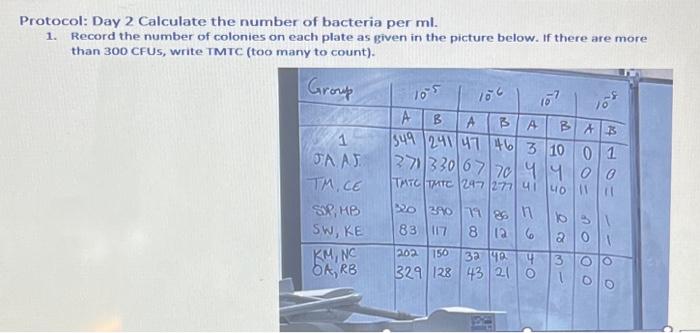 Protocol: Day 2 Calculate the number of bacteria per ml.
1. Record the number of colonies on each plate as given in the picture below. If there are more
than 300 CFUs, write TMTC (too many to count).
Group 10⁻⁵ 10⁻⁶ 10⁻⁷ 10⁻⁸
A B A B A B A B
1 349 241 47 46 3 10 0 1
JA AJ 371 330 67 70 4 4 0 0
TM, CE TMTC TMTC 247 277 41 40 11 11
SDP, MB 320 390 79 86 17 10 3 1
SW, KE 83 117 8 12 6 2 0 1
KM, NC 202 150 32 42 4 3 0 0
OA, RB 329 128 43 21 0 1 0 0